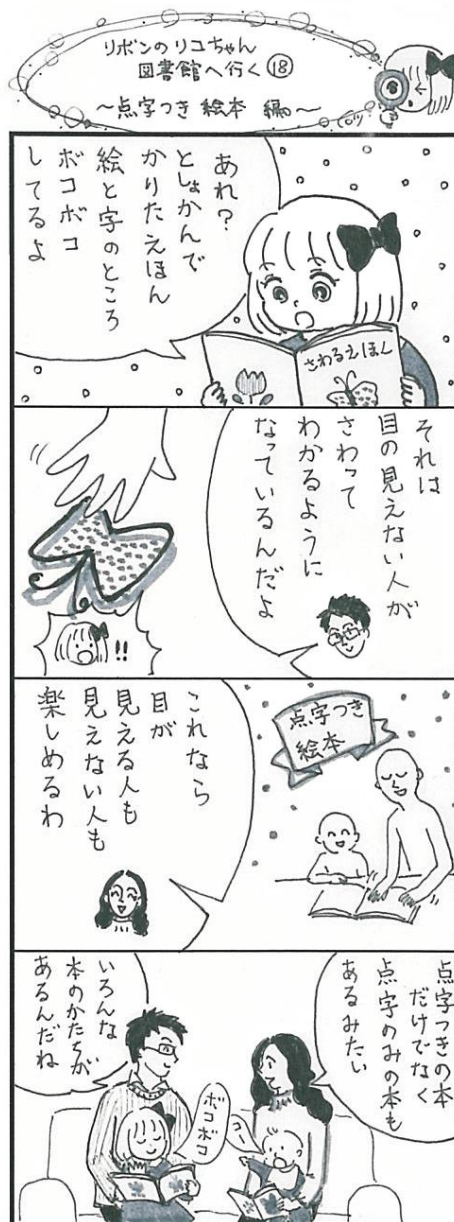 リボンのリコちゃん
図書館へ行く⑱
～点字つき絵本 編～
あれ?
としょかんで
かりたえほん
絵と字のところ
ボコボコ
してるよ
さわるえほん
それは
目の見えない人が
さわって
わかるように
なっているんだよ
!!
点字つき
絵本
これなら
目が
見える人も
見えない人も
楽しめるわ
点字つきの本
だけでなく
点字のみの本も
あるみたい
ボコ
ボコ
いろんな
本のかたちが
あるんだね